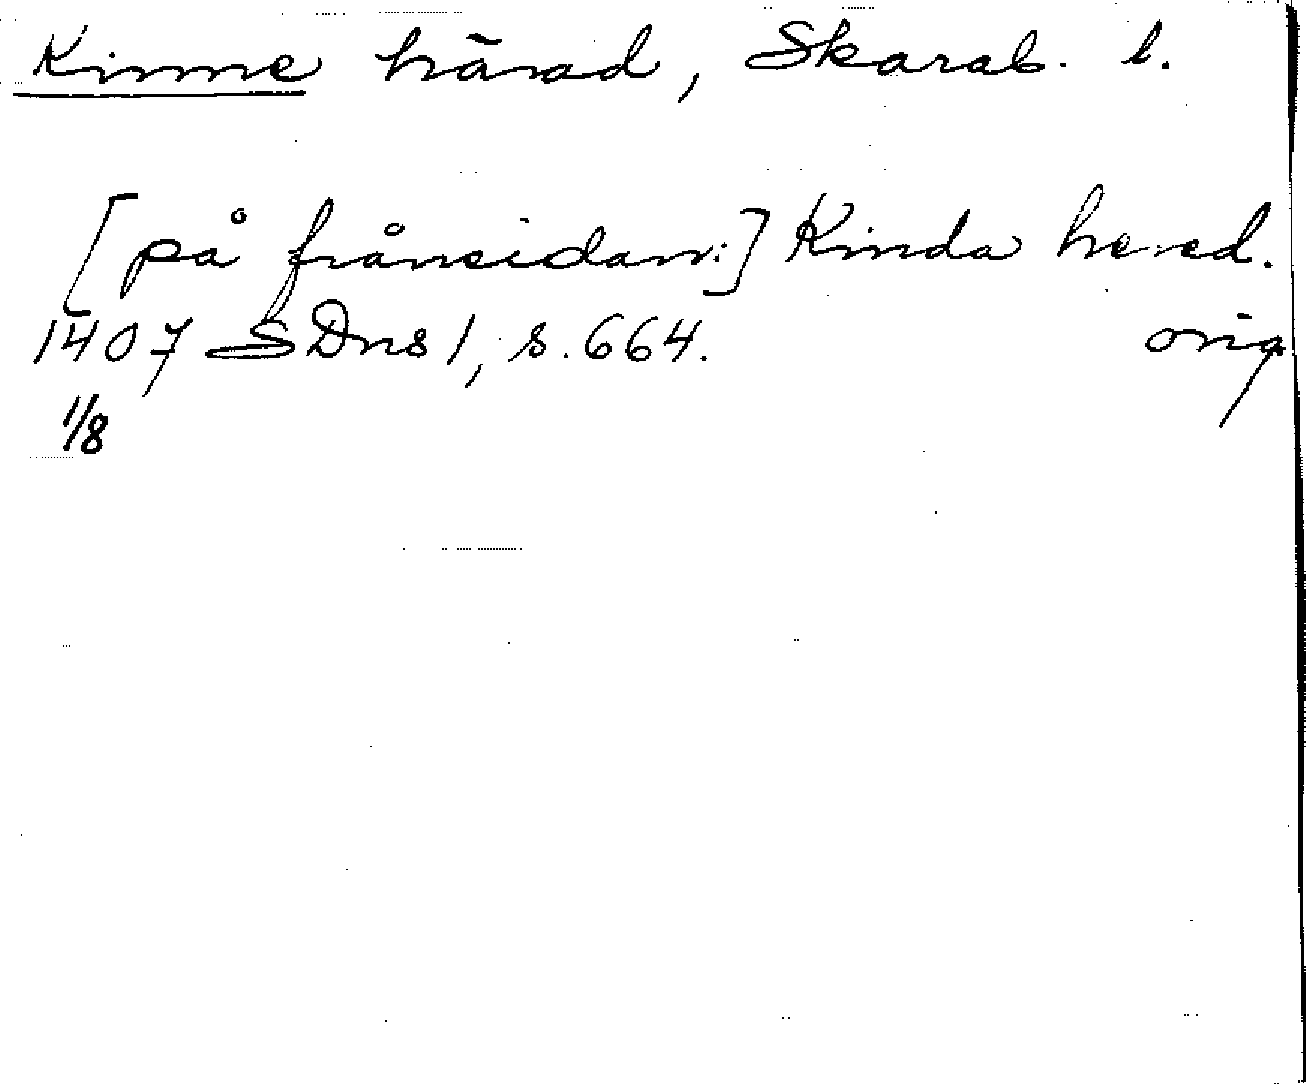 Kinne härad, Skarab. l.
[på frånsidan:] Kinda hered.
1407 SDns 1, s. 664. orig
1/8